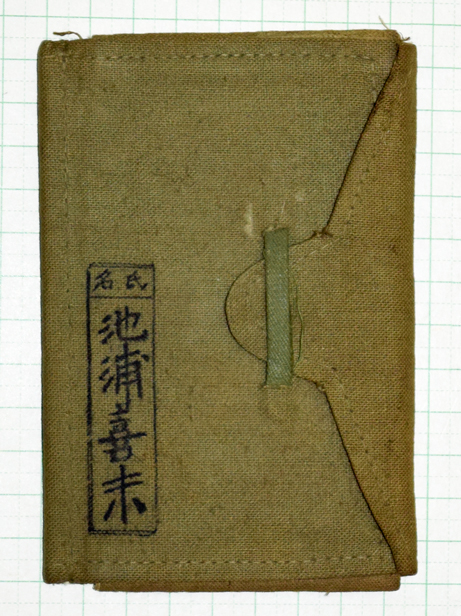 氏名
池浦喜未